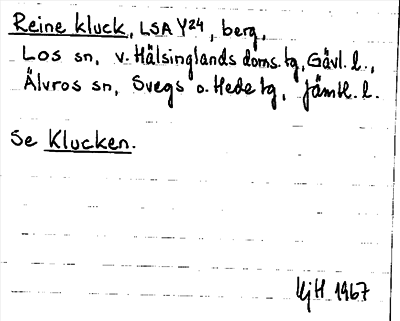 Reine kluck, LSA Y24, berg,
Los sn, v. Hälsinglands doms.tg, Gävl. l.,
Älvros sn, Svegs o. Hede tg, Jämtl. l.
Se Klucken.
HjH 1967